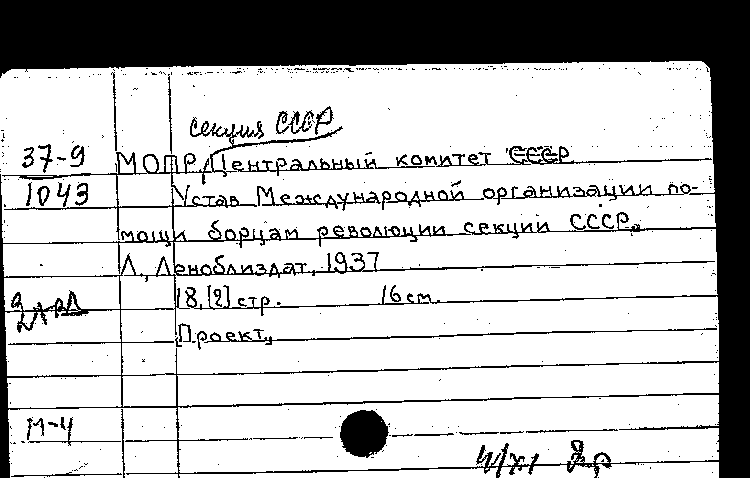 секция СССР
37-9 МОПР, Центральный комитет СССР
1043 Устав Международной организации по-
мощи борцам революции секции СССР.
Л., Леноблиздат, 1937
18, [2] стр. 16 см.
[Проект]
М-4